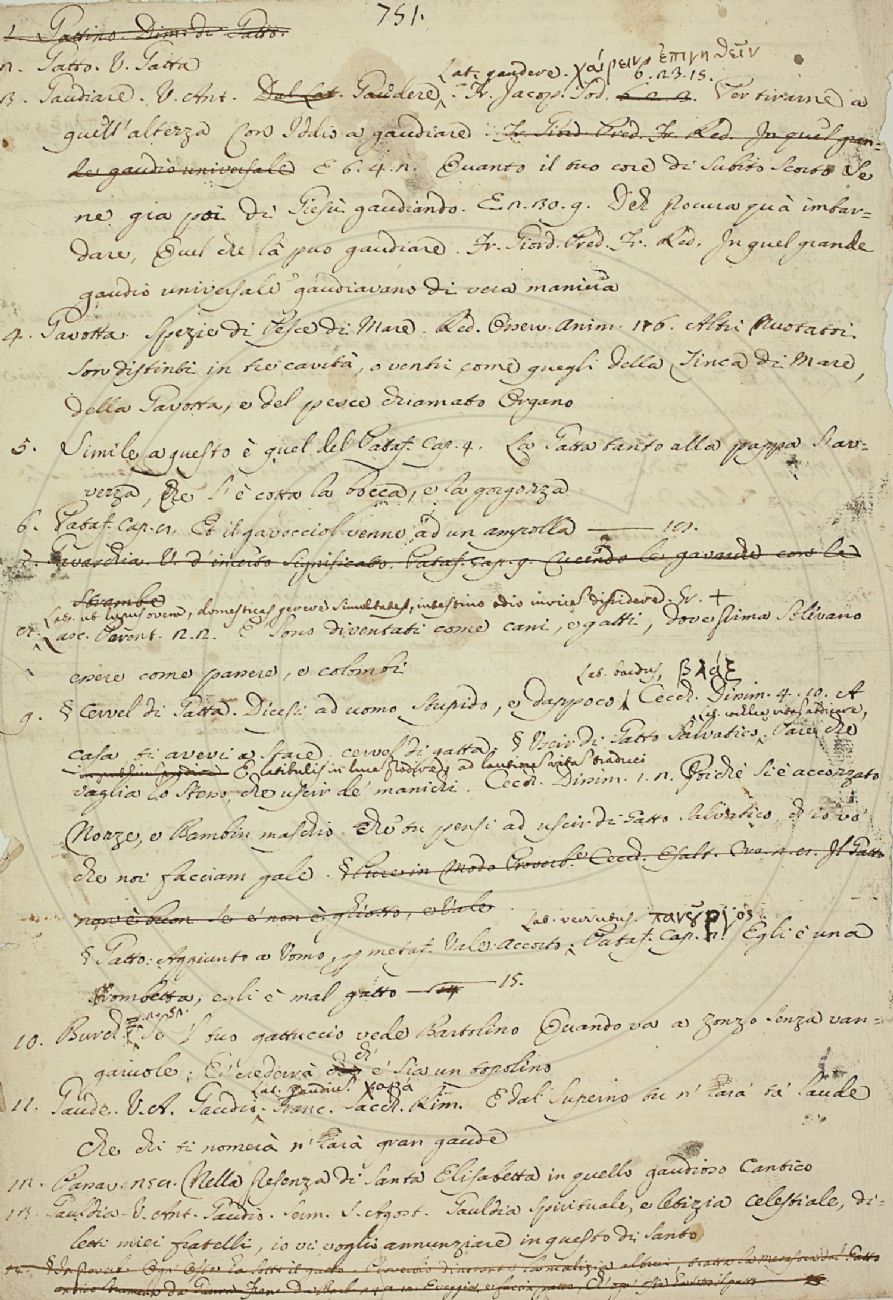 751.
1. Gattino. Dim. di Gatto.
2. Gatto. V. Gatta
Lat. gaudere. χαίρειν ἐπιγηθεῖν
3. Gaudiare. V. Ant. Dal Lat. Gaudere. Fr. Jacop. Tod. 6. 23. 15. Per tirarme a
quell'altezza Con Iddio a gaudiare. Fr. Giord. Pred. Fr. Red. In quel gran-
de gaudio universale E 6. 4. 2. Quanto il tuo core di subito scorto Se
ne gia poi di Giesù gaudiando. E 2. 30. 9. Deh procura quà imbar-
dare, Quel che là può gaudiare. Fr. Giord. Pred. Fr. Red. In quel grande
gaudio universale gaudiavano di vera maniera
4. Gavotta. Spezie di Pesce di Mare. Red. Osserv. Anim. 176. Altri Nuotatoi
son distinti in tre cavità, o ventri come quegli della Tinca di Mare,
della Gavotta, e del pesce chiamato Organo
5. Simile a questo è quel del Pataf. Cap. 4. La Gatta tanto alla pappa s'av-
vezza, Che s'è cotta la bocca, e la gorgozza
6. Pataf. Cap. Et il gavocciol venne ad un ampolla
7. Gavardia. V. d'incerto significato. Pataf. Cap. 9. Cucendo le gavardie con le
strambe
Lat. ut lupus ovem, domesticas gerere simultates, intestino odio invicem dissidere. Gr. +
8. Lasc. Parent. 2. 2. E sono diventati come cani, e gatti, dove prima solevano
essere come passere, e colombi
Lat. bardus, βλάξ
9. § Cervel di Gatta. Dicesi ad uomo stupido, e dappoco Cecch. Dissim. 4. 10. A
casa ti avevi a stare cervel di gatta § Uscir di Gatto salvatico. Pare che
E latibulis in lucem prodire, ad lautioris vitae traduci
vaglia lo stesso, che uscir de' manichi. Cecch. Dissim. 1. 2. Poichè si è accozzato
Nozze, e Bambin maschio che tu pensi ad uscir di Gatto salvatico, ch'io vo'
che noi facciam gale. § Pure in Modo Proverb. Cecch. Esalt. Cr. Il Gatto
non è buon se e' non è ghiotto, e Vale
Lat. versutus. πανοῦργος
§ Gatto. Aggiunto a Uomo, per metaf. Vale: Accorto Pataf. Cap. Egli è una
trombetta, egli è mal gatto 15.
10. Burch. 2. 52. Se 'l tuo gattuccio vede Bartolino Quando va a zonzo senza van-
gaiuole, E' crederrà ch' e' sia un topolino
Lat. gaudium χαρά
11. Gaude. V. A. Gaudio. Franc. Sacch. Rim. E dal Superino tu n' harà tà laude
Che chi ti nomerà n' harà gran gaude
12. Nella presenza di Santa Elisabetta in quello gaudioso Cantico
13. Gauldia. V. Ant. Gaudio. Serm. S. Agost. Gauldia spirituale, e letizia celestiale, di-
letti miei fratelli, io vi voglio annunziare in questo dì santo